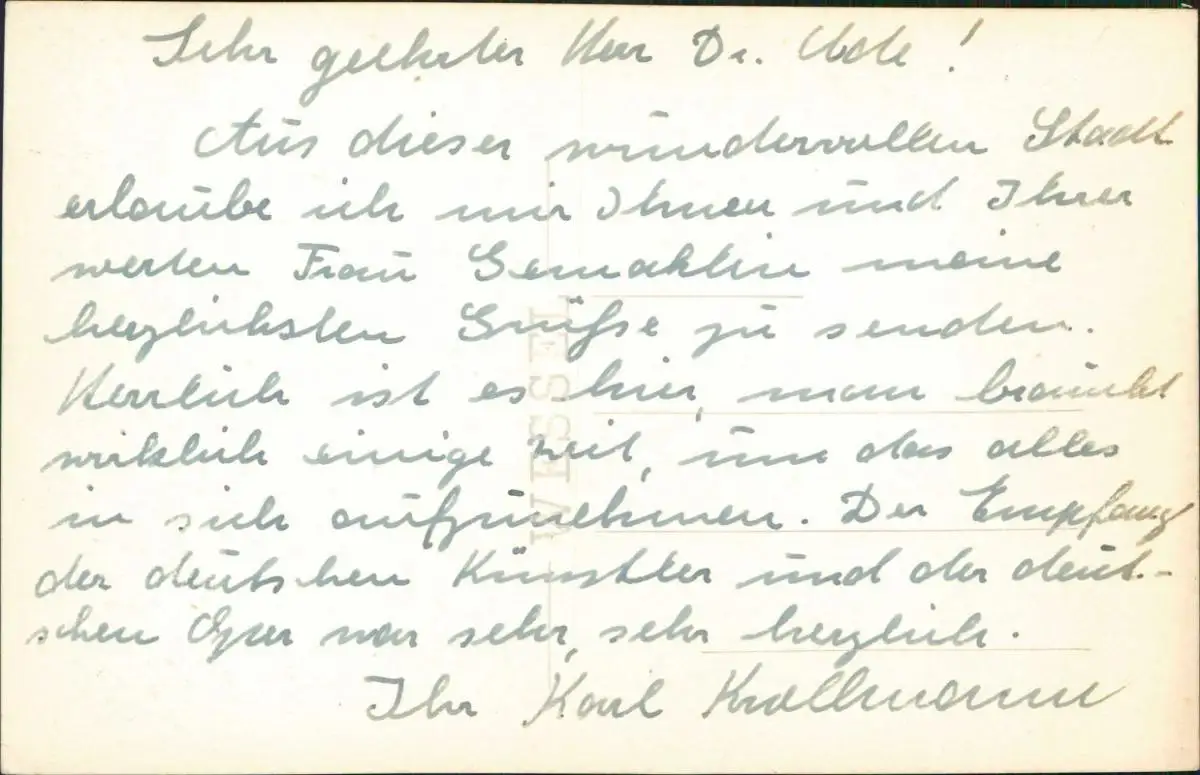 Sehr geehrter Herr Dr. Ude!
Aus dieser wundervollen Stadt
erlaube ich mir Ihnen und Ihrer
werten Frau Gemahlin meine
herzlichsten Grüße zu senden.
Herrlich ist es hier, man braucht
wirklich einige Zeit, um das alles
in sich aufzunehmen. Der Empfang
der deutschen Künstler und der deut-
schen Oper war sehr, sehr herzlich.
Ihr Karl Krollmann
WESSEL